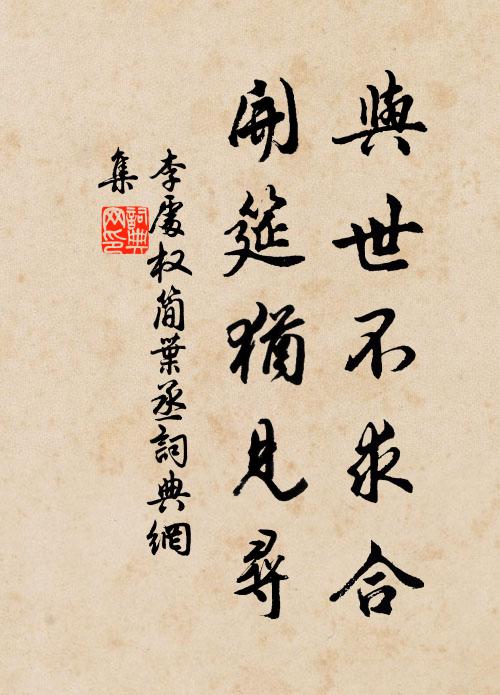 與世不求合
開筵猶見尋
李處權簡葉丞詞典網
集
詞典網印